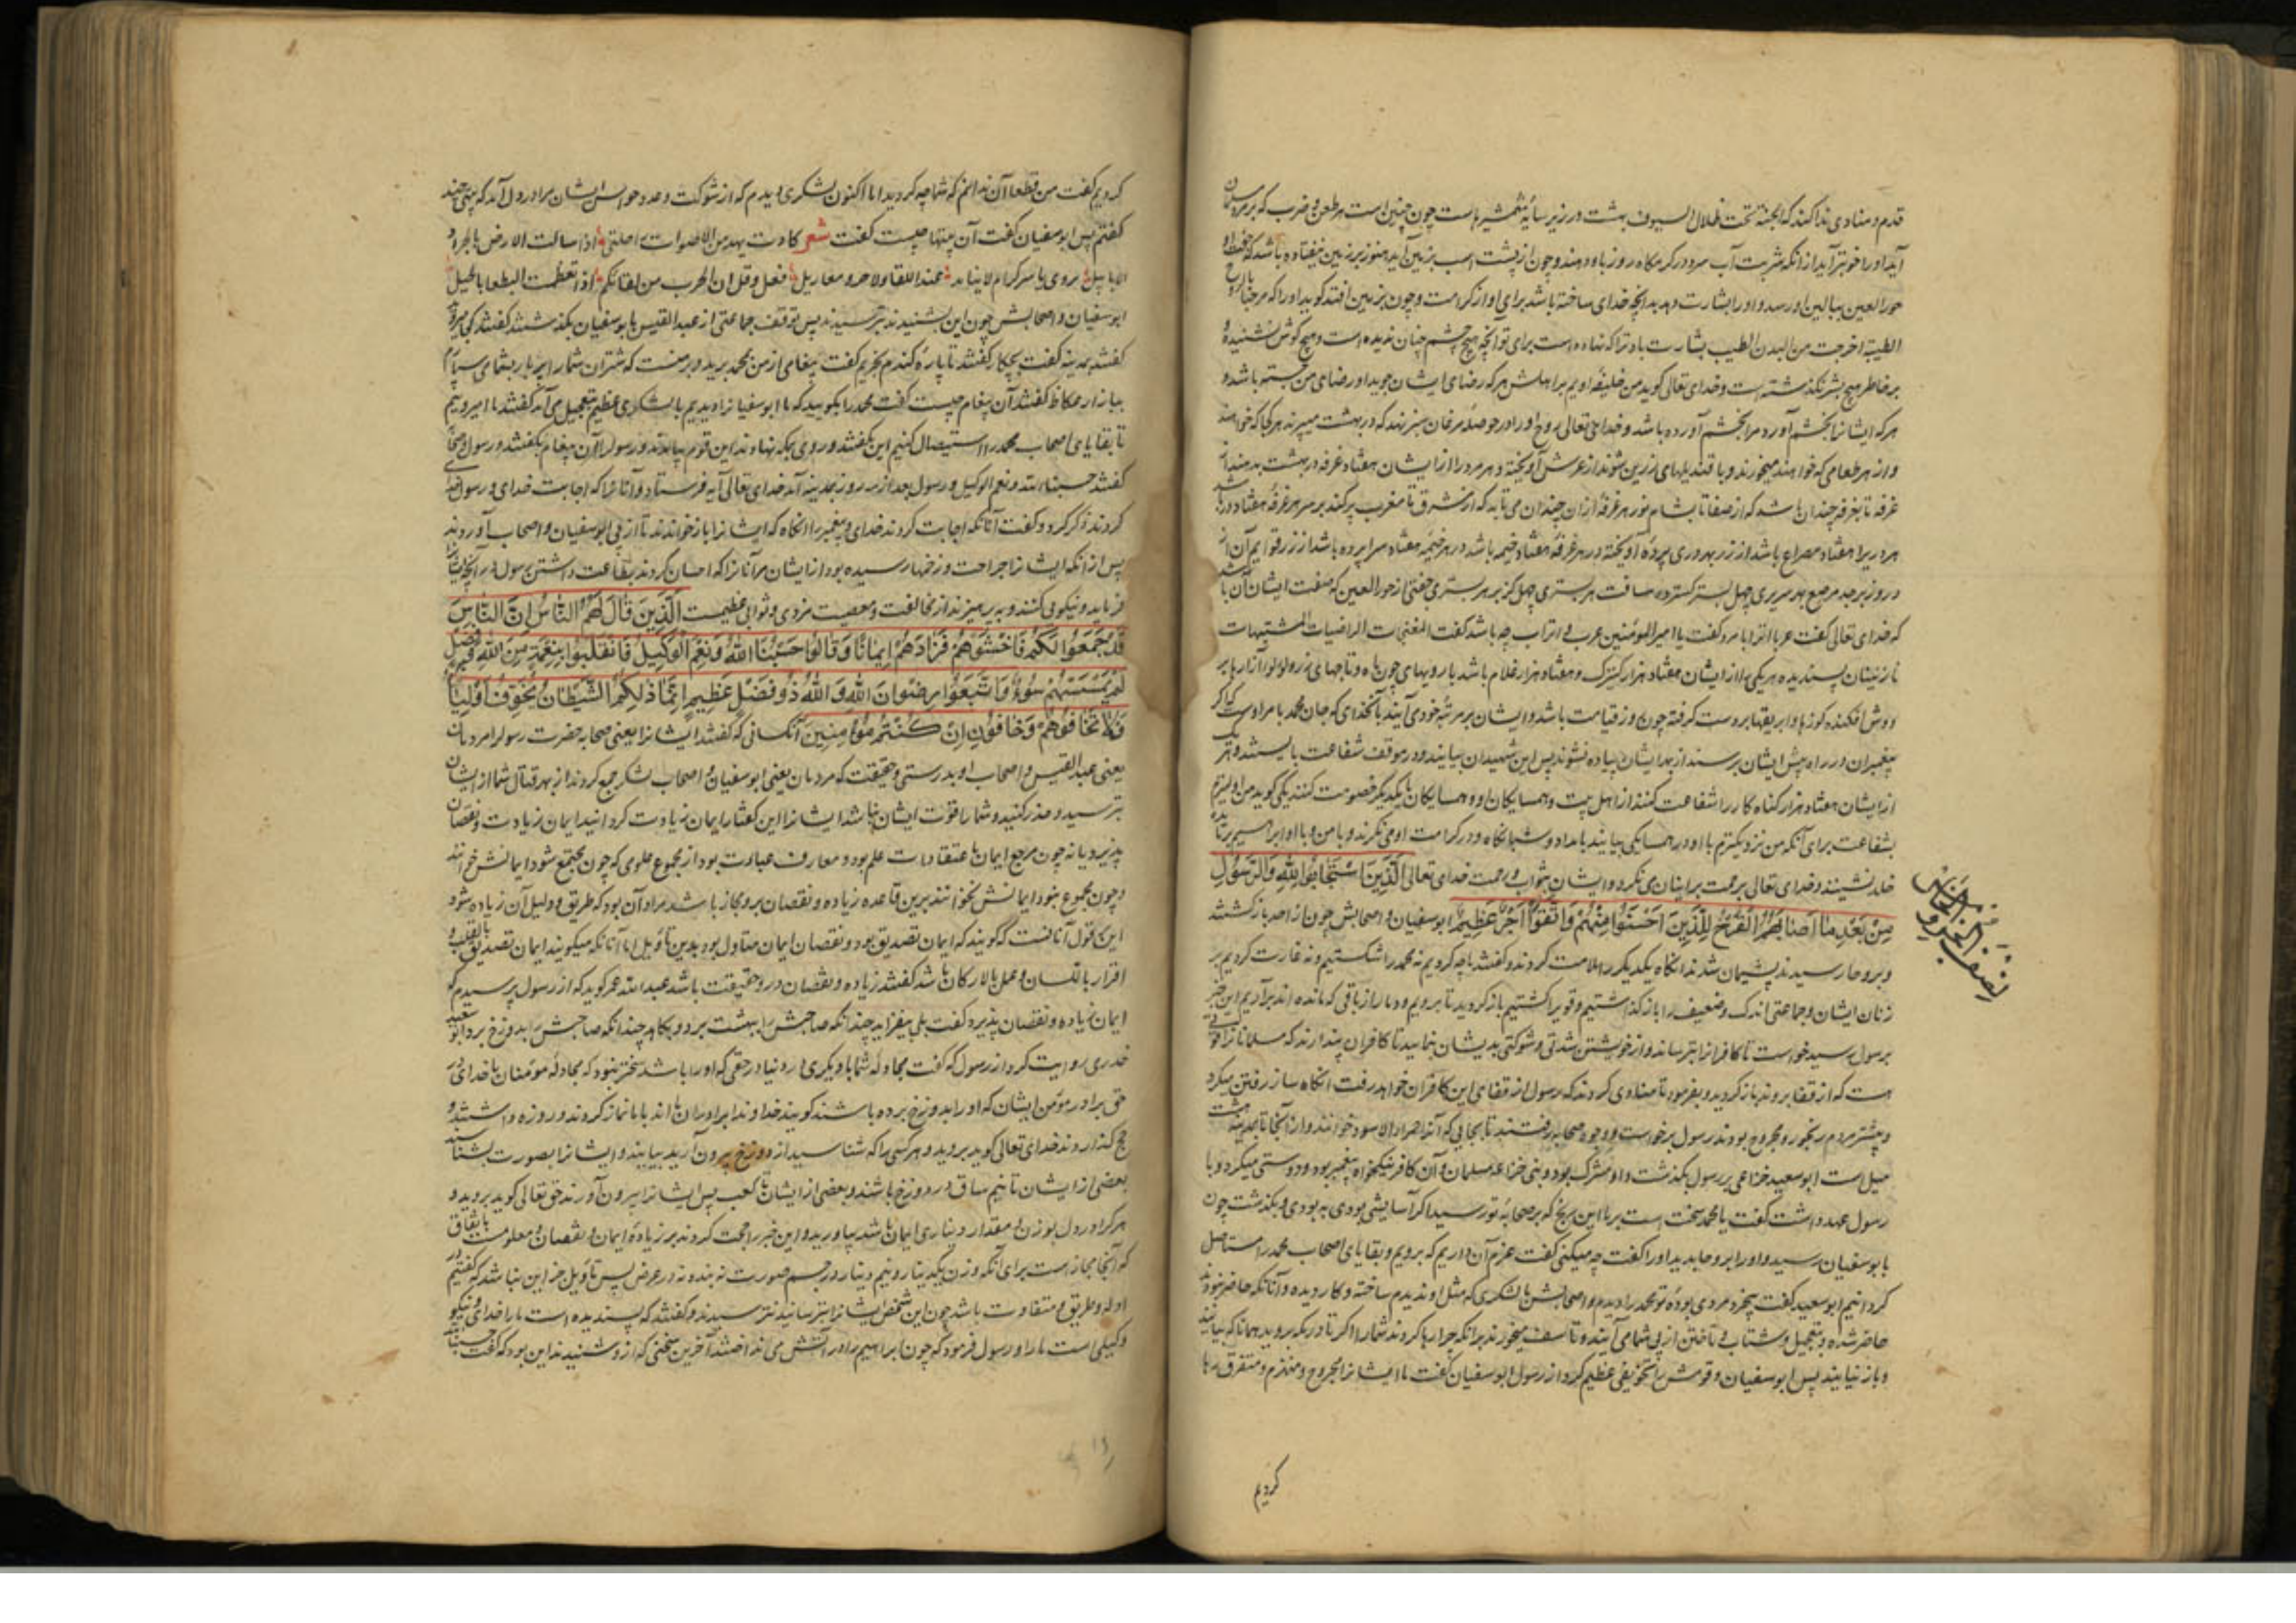 قدم و منادی ندا کند که الجنة تحت ظلال السیوف بهشت در زیر سایهٔ شمشیرهاست چون چنین است هر طعن و ضرب که بر مرد مسلمان
آید او را خوشتر آید از آنکه شربت آب سرد در کرمکاه روز باو دهند و چون از پشت اسب بزمین آید هنوز بر زمین نیفتاده باشد که
حور العین ببالین او رسد و او را بشارت دهد بدانچه خدای ساخته باشد برای او از کرامت و چون بزمین افتد کوید او را که مرحبا
الطیبة اخرجت من البدن الطیب بشارت باد ترا که نهاده است برای تو آنچه هیچ چشم چنان ندیده است و هیچ کوش نشنیده
بر خاطر هیچ بشر نکذشته است و خدای تعالی کوید من خلیفه اویم بر اهلش هر که رضای ایشان جوید او رضای من جسته باشد و
هر که ایشانرا بخشم آورد مرا بخشم آورده باشد و خدای تعالی روح او را در حوصلهٔ مرغان سبز نهد که در بهشت میپرند هر کجا که خواهند
و از هر طعامی که خواهند میخورند و با قندیلهای زرین شوند از عرش آویخته و هر مرد را از ایشان هفتاد غرفه در بهشت بدهند از
غرفه تا بغرفه چندان باشد که از صنعا تا بشام نور هر غرفه ازان چندان می تابد که از مشرق تا مغرب پر کند بر سر هر غرفه هفتاد در
هر دریرا هفتاد مصراع باشد از زر بهر دری پردهٔ آویخته در هر غرفه هفتاد خیمه باشد در هر خیمه هفتاد سرا پرده باشد از زر قوایم آن از
در و زبرجد مرصع بهر سریری چهل بستر کسترده مسافت هر بستری چهل کز بر هر بستری جفتی از حور العین که صفت ایشان آن
که خدای تعالی کفت عربا اترابا مرد کفت یا امیر المؤمنین عرب و اتراب چه باشد کفت المغنجات الراضیات المشتهیات
نازنینان پسندیده هر یکی را از ایشان هفتاد هزار کنیزک و هفتاد هزار غلام باشد با رویهای چون ماه و تاجهای زر و لؤلؤ
دوش افکنده کوزها و ابریقها بر دست کرفته چون روز قیامت باشد و ایشان بر مرتبه خود می آیند بآنخدای که جان محمد بامر اوست که
پیغمبران در راه پیش ایشان برسند از بهر ایشان پیاده شوند پس این شهیدان بیایند و در موقف شفاعت بایستند و هر
از ایشان هفتاد هزار کناه کار را شفاعت کنند از اهل بیت و همسایکان او و همسایکان با یکدیکر خصومت کنند یکی کوید من
بشفاعت برای آنکه من نزدیکترم باو در همسایکی بیایند بامداد و شبانکاه و در کرامت او می نکرند و با من و با ابراهیم بر
خلد نشینند و خدای تعالی برحمت بر اینان می نکرد و ایشان بثواب و رحمت خدای تعالی اَلَّذِینَ اسْتَجَابُوا لِلّهِ وَالرَّسُولِ
مِنْ بَعْدِ مَا اَصَابَهُمُ الْقَرْحُ لِلَّذِینَ اَحْسَنُوا مِنْهُمْ وَاتَّقَوْا اَجْرٌ عَظِیمٌ ابو سفیان و اصحابش چون از احد باز کشتند
و بروحا رسیدند پشیمان شدند آنکاه یکدیکر را ملامت کردند و کفتند ما چه کردیم نه محمد را شکستیم و نه غارت کردیم بر
زنان ایشان و جماعتی اندک و ضعیف را باز کذاشتیم و قویرا کشتیم باز کردید تا برویم و دمار از باقی که مانده اند برآریم این خبر
برسول رسید خواست تا کافرانرا بترساند و از خویشتن شدتی و شوکتی بدیشان نماید تا کافران پندارند که مسلمانانرا
هست که از قفا بروند باز کردید و بفرمود تا منادی کردند که رسول از قفای این کافران خواهد رفت آنکاه ساز رفتن میکرد
و بیشتر مردم رنجور و مجروح بودند رسول برخاست و وجوه صحابه رفتند تا بجایی که آنرا حمراء الاسد خوانند و از آنجا تا بمدینه هشت
میل است ابو سعید خزاعی بر رسول بکذشت و او مشرک بود و بنی خزاعه مسلمان و آن کافر نیکخواه پیغمبر بود و دوستی میکرد و با
رسول عهد داشت کفت یا محمد سخت است بر ما این رنج که بر صحابه تو رسید اکر آسایشی بودی به بودی و بکذشت چون
بابو سفیان رسید و او را بروحا بدید او را کفت چه میکنی کفت عزم آن داریم که برویم و بقایای اصحاب محمد را مستاصل
کردانیم ابو سعید کفت بیخرد مردی بودهٔ تو محمد را دیدم و اصحابش با لشکری که مثل او ندیدم ساخته و کار دیده و آنانکه حاضر نبودند
حاضر شده و بتعجیل و شتاب و تاختن از پی شما می آیند و تاسف میخورند بر انکه چرا رها کردند شما را اکر تا دیکر بروید همانا که بیایند
و باز نیابید پس ابو سفیان و قومش را تخویفی عظیم کرد از رسول ابو سفیان کفت ما ایشانرا مجروح و منهزم و متفرق رها
کردیم
نصف الجزو
کردیم کفت من قطعا آن ندانم که شما چه کردید اما اکنون لشکری دیدم که از شوکت و عدد ایشان مرا در دل آمد که بیتی چند
کفتم پس ابو سفیان کفت آن بیتها چیست کفت شعر کادت تهد من الاصوات راحلتی اذا سالت الارض بالجرد
الابابیل فقل ان الحرب من لقائکم اذا تغطمت البطحا بالجیل
ابو سفیان و اصحابش چون این بشنیدند بترسیدند پس توقف جماعتی از عبد القیس بابو سفیان بکذشتند کفتند کجا میروید
کفتند بمدینه کفت بچکار کفتند تا پارهٔ کندم بخریم کفت پیغامی از من بمحمد برید و بر منست که شتران شما را پر بار
ببازار عکاظ کفتند آن پیغام چیست کفت محمد را بکویید که ما ابو سفیانرا دیدیم با لشکری عظیم بتعجیل می آمد کفتند ما میرویم
تا بقایای اصحاب محمد را استیصال کنیم این بکفتند و روی بمکه نهادند این قوم بیامدند و رسول را آن پیغام بکفتند رسول
کفتند حسبنا الله و نعم الوکیل و رسول بعد از سه روز بمدینه آمد خدای تعالی آیه فرستاد و آنانرا که اجابت خدای و رسول
کردند ذکر کرد و کفت آنانکه اجابت کردند خدای و پیغمبر را آنکاه که ایشانرا باز خواندند تا از پی ابو سفیان و اصحاب او روند
پس از آنکه ایشانرا جراحت و زخمها رسیده بود از ایشان مر آنانرا که احسان کردند بطاعت داشتن رسول در آنچه
فرماید و نیکویی کنند و بپرهیزند از مخالفت و معصیت مزدی و ثوابی عظیمست اَلَّذِینَ قَالَ لَهُمُ النَّاسُ اِنَّ النَّاسَ
قَدْ جَمَعُوا لَکُمْ فَاخْشَوْهُمْ فَزَادَهُمْ اِیمَانًا وَقَالُوا حَسْبُنَا اللّهُ وَنِعْمَ الْوَکِیلُ فَانْقَلَبُوا بِنِعْمَةٍ مِنَ اللّهِ وَفَضْلٍ
لَمْ یَمْسَسْهُمْ سُوءٌ وَاتَّبَعُوا رِضْوَانَ اللّهِ وَاللّهُ ذُو فَضْلٍ عَظِیمٍ اِنَّمَا ذلِکُمُ الشَّیْطَانُ یُخَوِّفُ اَوْلِیَآءَ
فَلَا تَخَافُوهُمْ وَخَافُونِ اِنْ کُنْتُمْ مُؤْمِنِینَ آنکسانی که کفتند ایشانرا یعنی صحابه حضرت رسول را مردمان
یعنی عبد القیس و اصحاب او بدرستی و حقیقت که مردمان یعنی ابو سفیان و اصحاب لشکر جمع کردند از بهر قتال شما از ایشان
بترسید و حذر کنید و شما را قوت ایشان نباشد ایشانرا این کفتار ایمان زیادت کردانید ایمان زیادت و نقصان
پذیرد یا نه چون مرجع ایمان با اعتقادات علم بود و معارف عبارت بود از مجموع علومی که چون مجتمع شود ایمانش خوانند
و چون مجموع نبود ایمانش نخوانند برین قاعده زیاده و نقصان برو مجاز باشد مراد آن بود که طریق و دلیل آن زیاده شود
این قول آنانست که کویند که ایمان تصدیق بود و نقصان ایمان متاول بود بدین تاویل اما آنانکه میکویند ایمان تصدیق بالقلب و
اقرار باللسان و عمل بالارکان باشد کفتند زیاده و نقصان در و حقیقت باشد عبد الله عمر کوید که از رسول پرسیدم که
ایمان زیاده و نقصان پذیرد کفت بلی بیفزاید چندانکه صاحبش را ببهشت برد و بکاهد چندانکه صاحبش را بدوزخ برد ابو سعید
خدری روایت کرد از رسول که کفت مجادلهٔ شما با دیکری در دنیا در حقی که او را باشد سختتر نبود که مجادلهٔ مؤمنان با خدای
حق برادر مؤمن ایشان که او را بدوزخ برده باشند کویند خداوندا برادران ما اند با ما نماز کردند و روزه داشتند و
حج کذاردند خدای تعالی کوید بروید و هر کسی را که شناسید از دوزخ بیرون آرید بیایند و ایشانرا بصورت بشناسند
بعضی از ایشان تا نیم ساق در دوزخ باشند و بعضی از ایشان تا کعب پس ایشانرا بیرون آورند حق تعالی کوید بروید و
هر کرا در دل بوزن و مقدار دیناری ایمان باشد بیاورید و این خبر را حجت کردند بر زیادهٔ ایمان و نقصان و معلومست باتفاق
که آنجا مجاز است برای آنکه وزن یکدینار و نیم دینار در جسم صورت نبندد نه در عرض پس تاویل جز این نباشد که کفتیم در
ادله و طریق و متفاوت باشد چون این شخص ایشانرا بترسانید نترسیدند و کفتند که پسندیده است ما را خدای و نیکو
وکیلی است ما را و رسول فرمود که چون ابراهیم را در آتش می انداختند آخرین سخنی که از و شنیدند این بود که کفت حسبنا